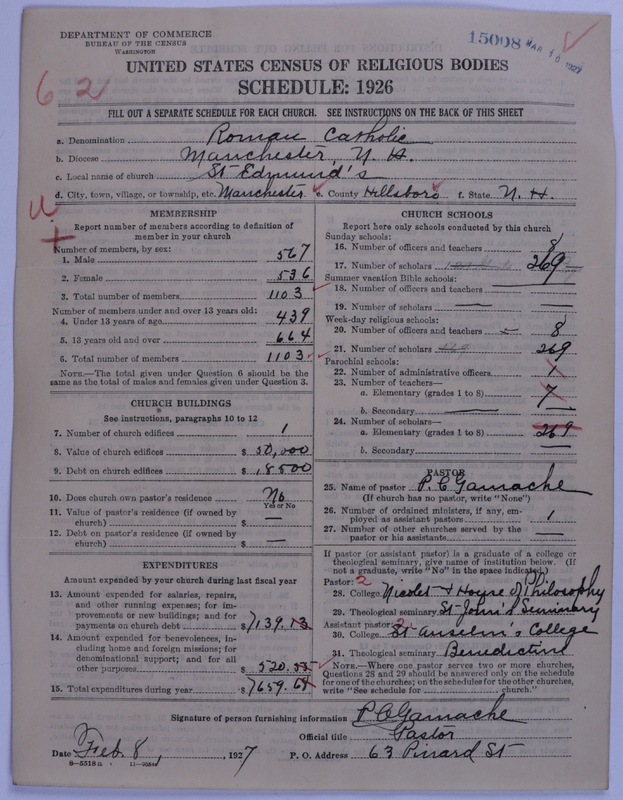 DEPARTMENT OF COMMERCE
BUREAU OF THE CENSUS
WASHINGTON
15008 MAR 10 1927
62
UNITED STATES CENSUS OF RELIGIOUS BODIES
SCHEDULE: 1926
FILL OUT A SEPARATE SCHEDULE FOR EACH CHURCH. SEE INSTRUCTIONS ON THE BACK OF THIS SHEET
a. Denomination Roman Catholic
b. Diocese Manchester, N. H.
c. Local name of church St Edmund's
d. City, town, village, or township, etc. Manchester e. County Hillsboro f. State N. H.
MEMBERSHIP
Report number of members according to definition of
member in your church
Number of members, by sex:
1. Male 567
2. Female 536
3. Total number of members 1103
Number of members under and over 13 years old:
4. Under 13 years of age 439
5. 13 years old and over 664
6. Total number of members 1103
NOTE.—The total given under Question 6 should be
same as the total of males and females given under Question 3.
CHURCH BUILDINGS
See instructions, paragraphs 10 to 12
7. Number of church edifices 1
8. Value of church edifices $ 50,000
9. Debt on church edifices $ 18500
10. Does church own pastor's residence No
Yes or No
11. Value of pastor's residence (if owned by
church) $ —
12. Debt on pastor's residence (if owned by
church) $ —
EXPENDITURES
Amount expended by your church during last fiscal year
13. Amount expended for salaries, repairs,
and other running expenses; for im-
provements or new buildings; and for
payments on church debt $ 7139.13
14. Amount expended for benevolences, in-
cluding home and foreign missions; for
denominational support; and for all
other purposes $ 520.55
15. Total expenditures during year $ 7659.68
CHURCH SCHOOLS
Report here only schools conducted by this church
Sunday schools:
16. Number of officers and teachers 8
17. Number of scholars 269
Summer vacation Bible schools:
18. Number of officers and teachers —
19. Number of scholars — —
Week-day religious schools:
20. Number of officers and teachers 8
21. Number of scholars 269 269
Parochial schools:
22. Number of administrative officers 1
23. Number of teachers—
a. Elementary (grades 1 to 8) 7
b. Secondary — —
24. Number of scholars—
a. Elementary (grades 1 to 8) 269
b. Secondary —
PASTOR
25. Name of pastor P. C Gamache
(If church has no pastor, write "None")
26. Number of ordained ministers, if any, em-
ployed as assistant pastors 1
27. Number of other churches served by the
pastor or his assistants —
If pastor (or assistant pastor) is a graduate of a college or
theological seminary, give name of institution below. (If
not a graduate, write "No" in the space indicated.)
Pastor: 2
28. College Nicolet + House of Philosophy
29. Theological seminary St John's Seminary
Assistant pastor: 2
30. College St Anselm's College
31. Theological seminary Benedictine
NOTE.—Where one pastor serves two or more churches,
Questions 28 and 29 should be answered only on the schedule
for one of the churches; on the schedules for the other churches,
write "See schedule for church."
Signature of person furnishing information P C Gamache
Official title Pastor
Date Feb. 8, 1927 P. O. Address 63 Pinard St
8—5518 a 11—9284